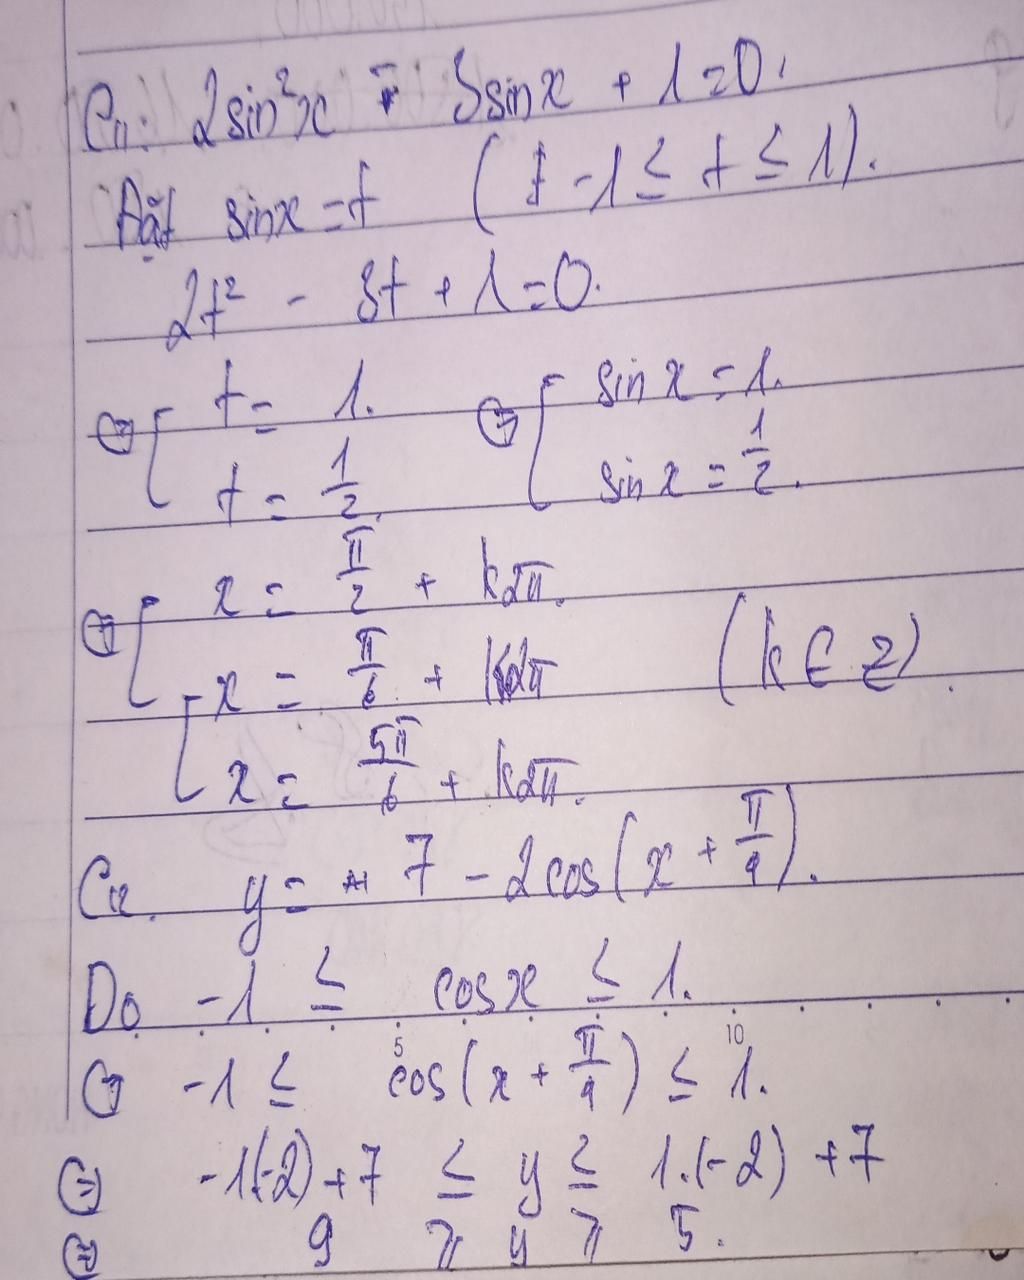 C11: 2sin²x - 3sinx + 1 = 0.
Đặt sinx = t ( -1 ≤ t ≤ 1).
2t² - 3t + 1 = 0.
⇔ [ t = 1. ⇔ [ sin x = 1.
t = 1/2. sin x = 1/2.
⇔ [ x = π/2 + k2π.
[ x = π/6 + k2π (k ∈ Z).
x = 5π/6 + k2π.
C12. y = 7 - 2cos(x + π/4).
Do -1 ≤ cosx ≤ 1.
5 10
⇔ -1 ≤ cos(x + π/4) ≤ 1.
⇔ -1(-2) + 7 ≤ y ≤ 1.(-2) + 7
⇔ 9 ≥ y ≥ 5.